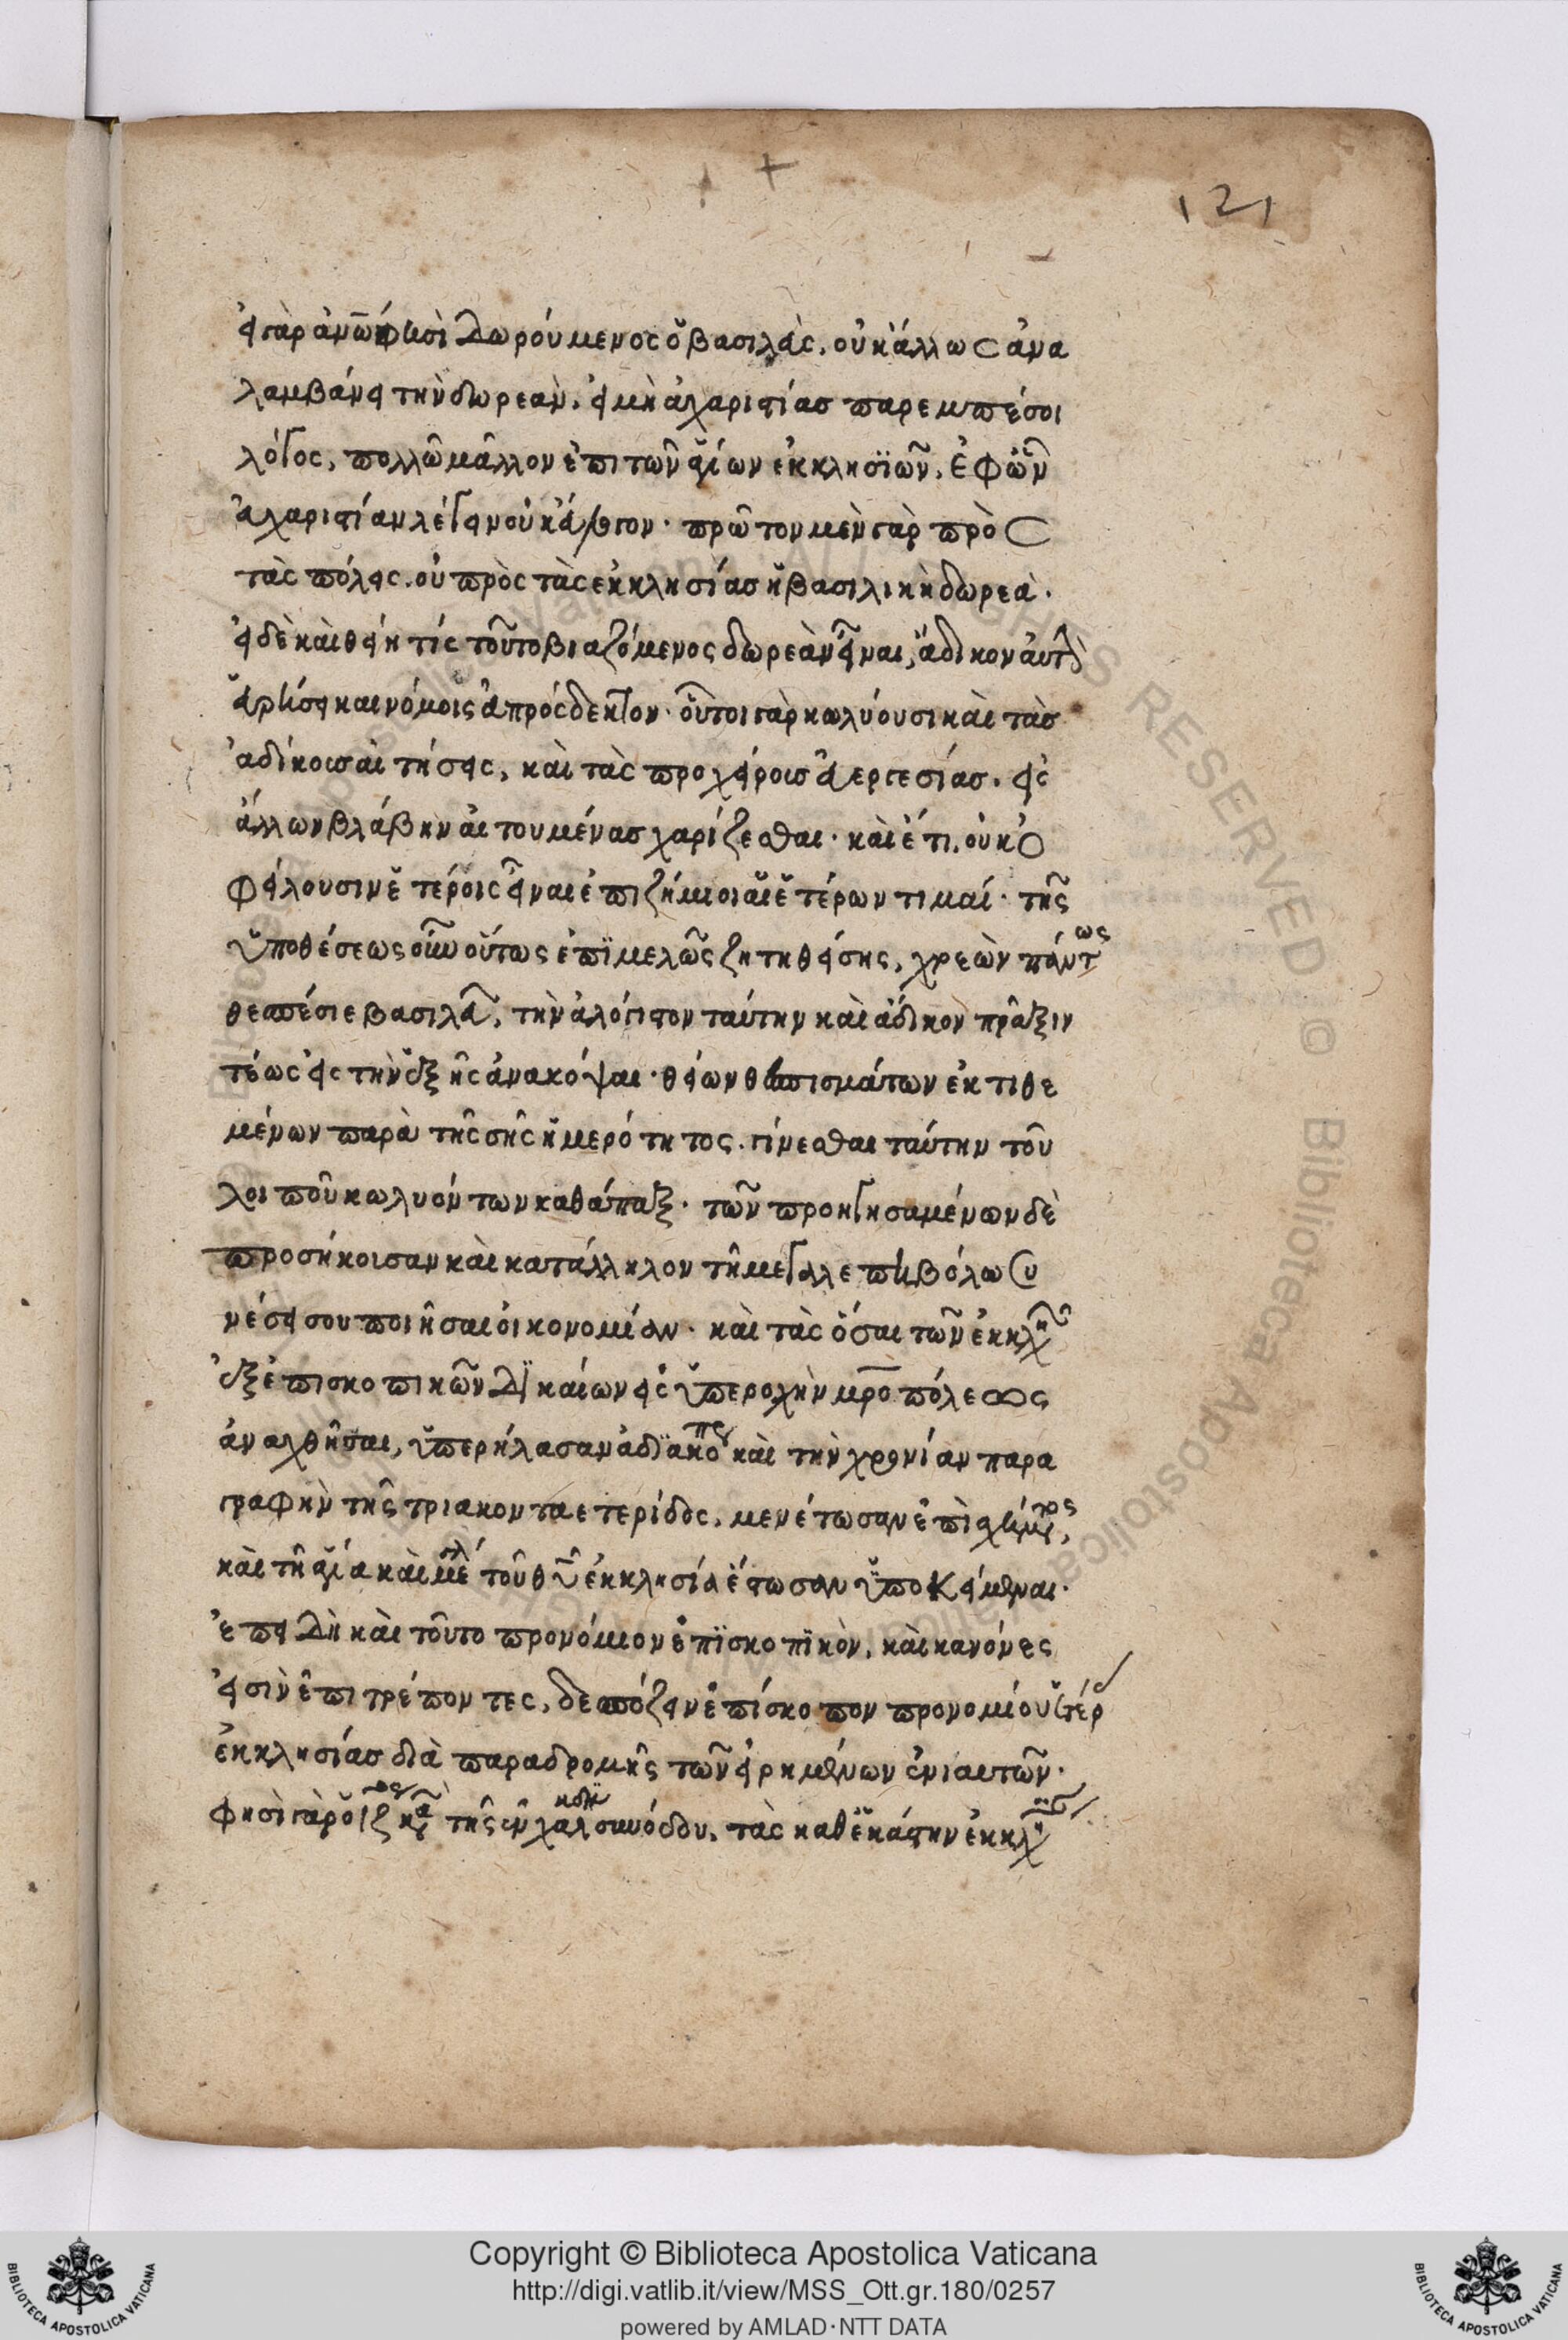 121
εἰ γὰρ ἀνω φησὶ δωρούμενος ὁ βασιλεὺς, οὐκ ἄλλως ἀνα
λαμβάνει τὴν δωρεὰν, εἰ μὴ ἀχαριστίας παρεμπέσοι
λόγος, πολλῶ μᾶλλον ἐπὶ τῶν ἁγίων ἐκκλησιῶν, ἐφ ὧν
ἀχαριστίαν λέγειν οὐκ πρῶτον μὲν γὰρ πρὸς
τὰς πόλεις. οὐ πρὸς τὰς ἐκκλησίας ἡ βασιλικὴ δωρεά.
εἰ δὲ καὶ θείη τίς τοῦτο βιαζόμενος δωρεὰν εἶναι, ἄδικον αὐτὴν
εὑρήσει καὶ νόμοις ἀπρόσδεκτον. οὗτοι γὰρ κωλύουσι καὶ τὰς
ἀδίκους αἰτήσεις, καὶ τὰς προχείρους εὐεργεσίας. εἰς
ἄλλων βλάβην αἰτουμένας χαρίζεσθαι. καὶ ἔτι, οὐκ ὀ
φείλουσιν ἑτέροις εἶναι ἐπιζήμιοι αἱ ἑτέρων τιμαί. τῆς
ὑποθέσεως οὖν οὕτως ἐπιμελῶς ζητηθείσης, χρεὼν πάντως
θεσπέσιε βασιλεῦ, τὴν ἀλόγιστον ταύτην καὶ ἄδικον πρᾶξιν
τέως εἰς τὴν ἑξῆς ἀνακόψαι. θείων θεσπισμάτων ἐκτιθε
μένων παρὰ τῆς σῆς ἡμερότητος. γίνεσθαι ταύτην τοῦ
λοιποῦ κωλυόντων καθάπαξ. τῶν προηγησαμένων δὲ
προσήκουσαν καὶ κατάλληλον τῆ μεγαλεπηβόλω συ
νέσει σου ποιῆσαι οἰκονομίαν. καὶ τὰς ὅσαι τῶν ἐκκλησιῶν
ἐξ ἐπισκοπικῶν δικαίων εἰς ὑπεροχὴν μροπόλεως
ἀναχθῆσαι, ὑπερήλασαν ἀδιακόπως καὶ τὴν χρονίαν παρα
γραφὴν τῆς τριακονταετερίδος, μενέτωσαν ἐπὶ σχήματος,
καὶ τῆ ἁγία καὶ μεγάλη τοῦ θυ ἐκκλησία ἔστωσαν ὑποκείμεναι.
ἐπειδὴ καὶ τοῦτο προνόμιον ἐπισκοπικὸν, καὶ κανόνες
εἰσὶν ἐπιτρέποντες, δεσπόζειν ἐπίσκοπον προνομίου ἑτέρας
ἐκκλησίας διὰ παραδρομῆς τῶν εἰρημένων ἐνιαυτῶν.
φησὶ γὰρ ὁ ιζ κανὼν τῆς ἐν χαλκηδόνι συνόδου, τὰς καθ ἑκάστην ἐκκλησίαν
Copyright © Biblioteca Apostolica Vaticana
http://digi.vatlib.it/view/MSS_Ott.gr.180/0257
powered by AMLAD·NTT DATA